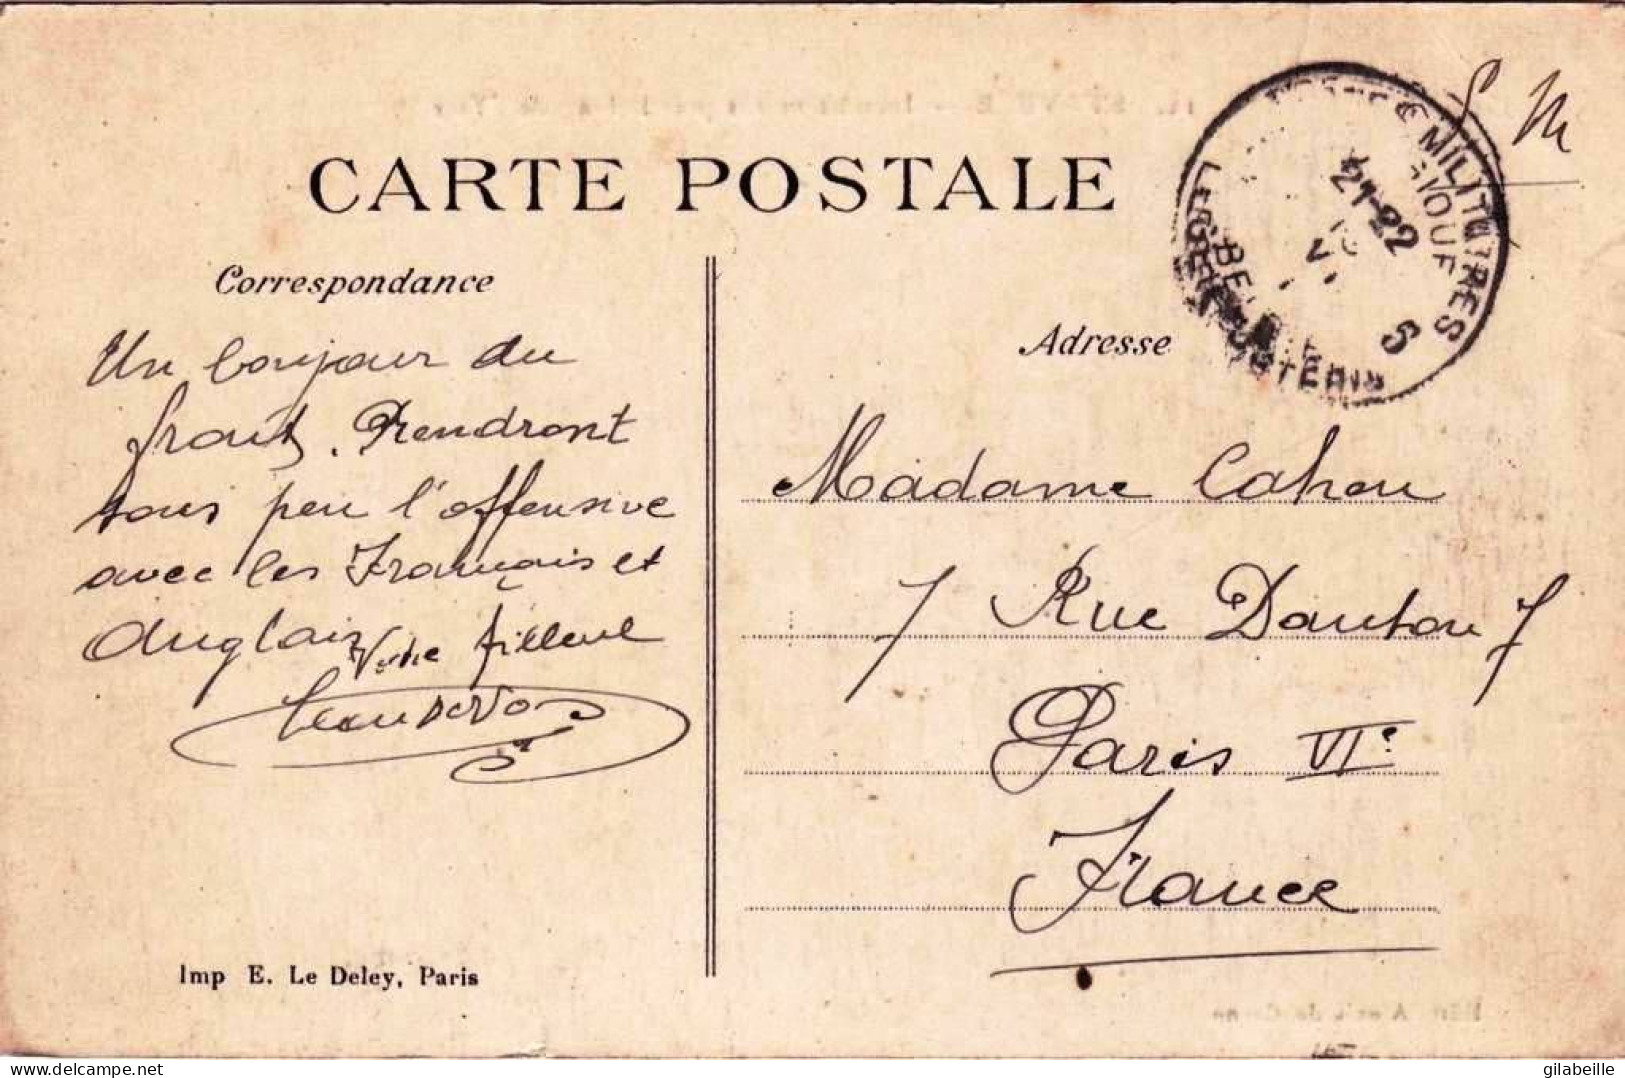 CARTE POSTALE
S M
MILIT IRES
21-22
LEGER POSTERIJ
BE
5
Correspondance
Adresse
Un bonjour du
front. Prendront
sous peu l'offensive
avec les Français et
Anglais Votre filleul
Madame Cahen
7 Rue Danton 7
Paris VIe
France
Imp E. Le Deley, Paris
gilabeille